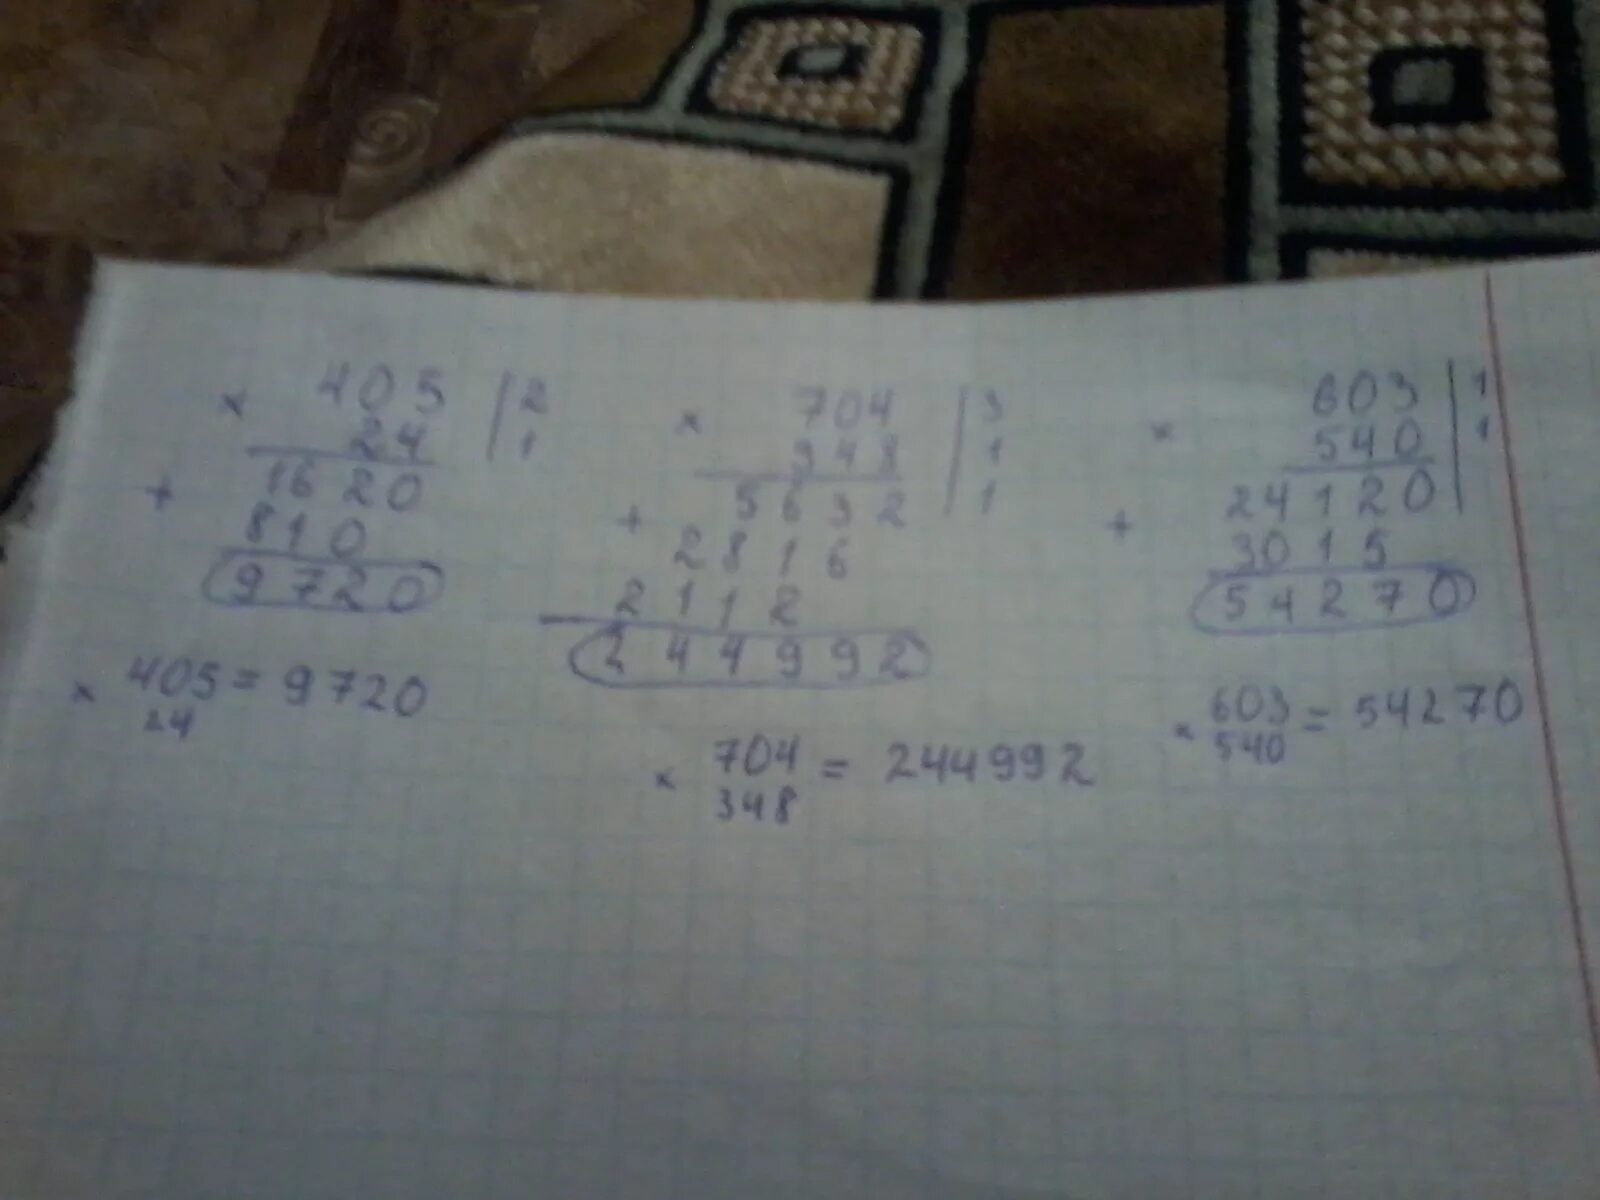 × 405 | 2
24 | 1
+ 1620
810
9720
× 405 = 9720
24
× 704 | 3
348 | 1
+ 5632 | 1
2816
2112
244992
× 704 = 244992
348
× 603 | 1
540 | 1
+ 24120
3015
54270
× 603 = 54270
540